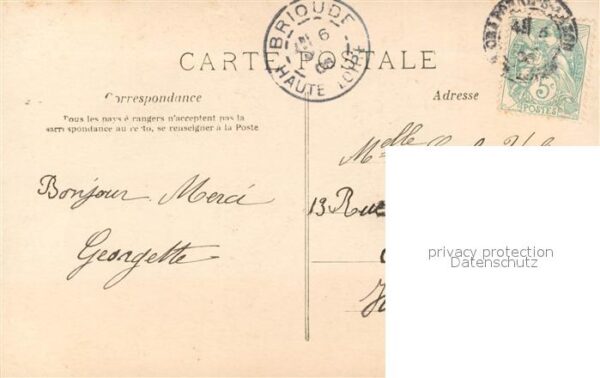 CARTE POSTALE
BRIOUDE
6
06
HAUTE LOIRE
5c
POSTES
Correspondance
Tous les pays étrangers n'acceptent pas la
correspondance au recto, se renseigner à la Poste
Adresse
Bonjour. Merci
Georgette
Melle
13 Rue
privacy protection
Datenschutz